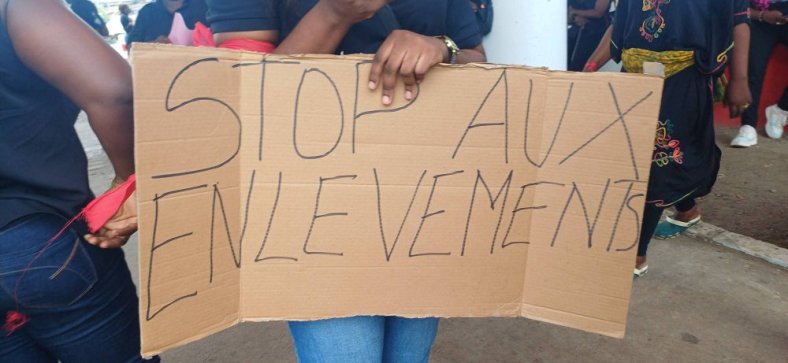 STOP AUX
ENLEVEMENTS